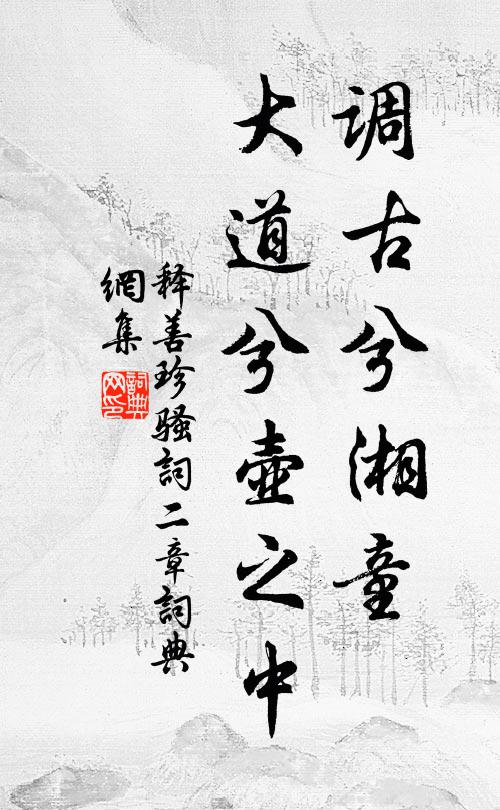 调古兮湘童
大道兮壶之中
释善珍骚词二章词典
網集
詞典
网印